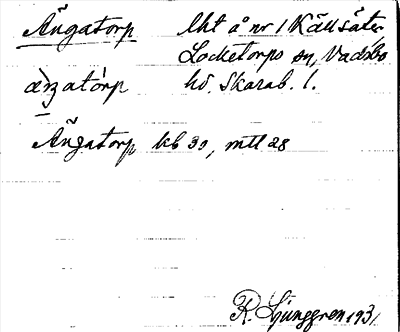 Ängatorp lht å nr 1 Källsäter,
Locketorps sn, Vadsbo
hd Skarab. l.
Ängatorp kb 30, mtl 28
R. Ljunggren 1931